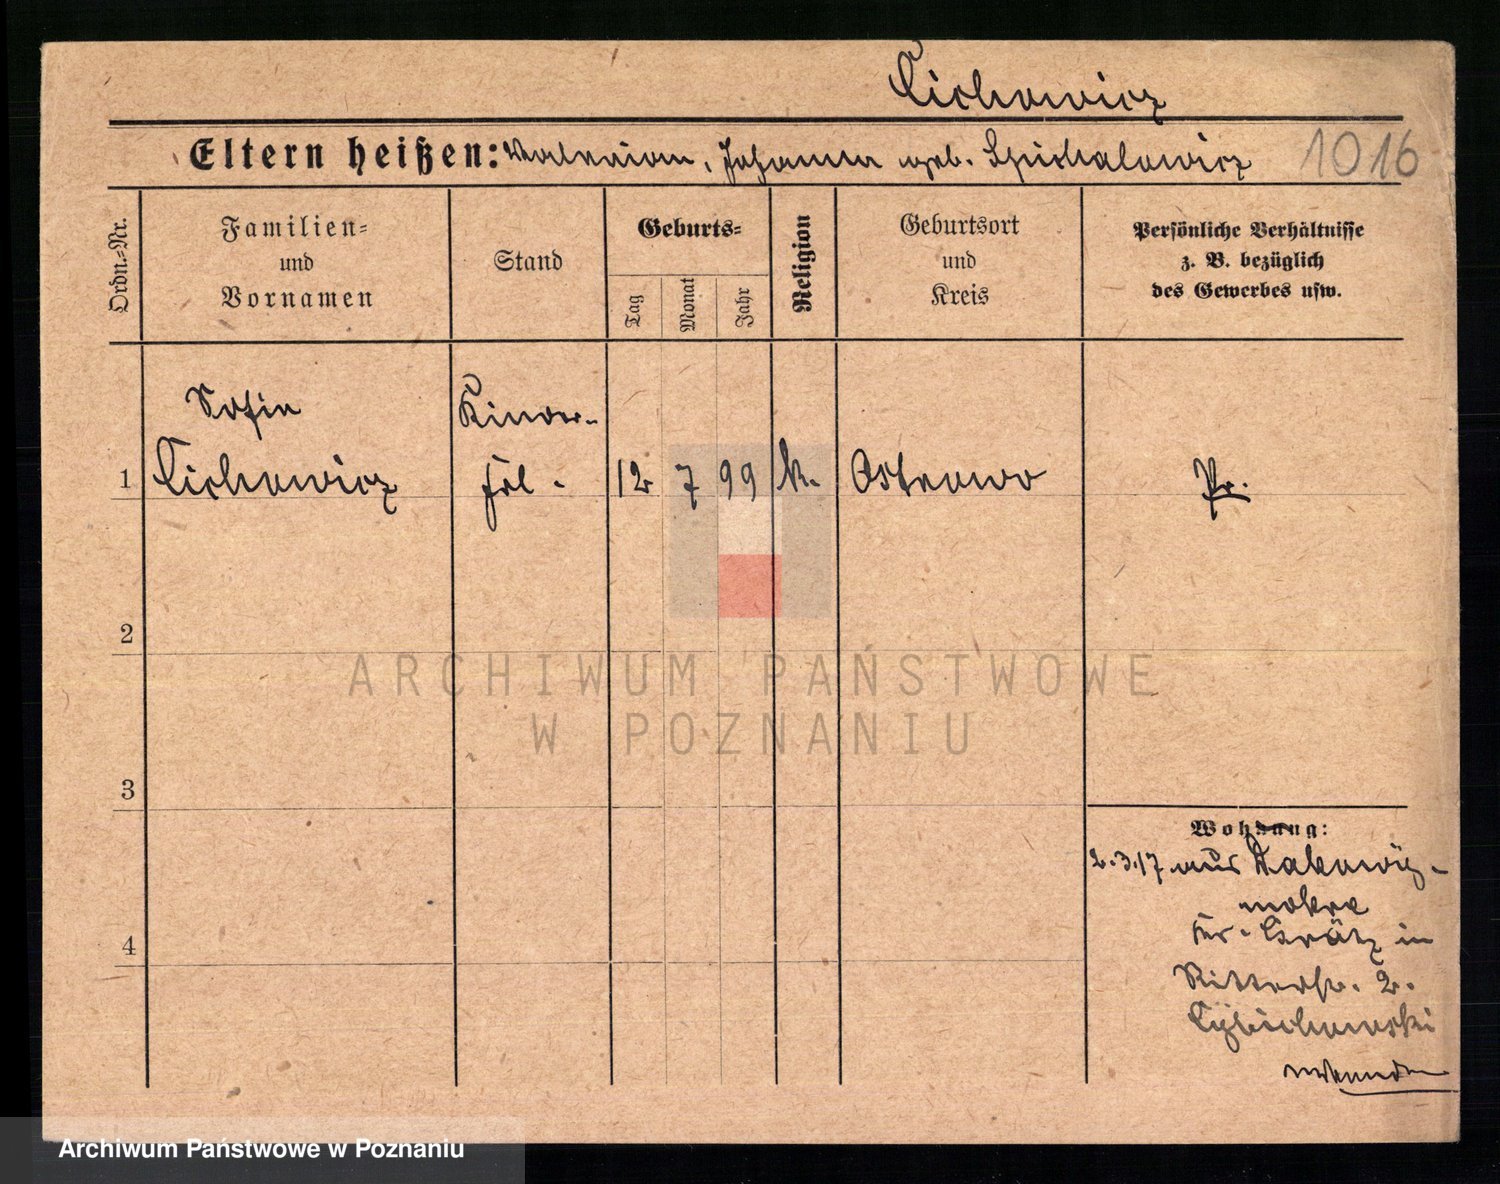 Cichowicz
Eltern heißen: Valerian, Johanna geb. Spichalowicz
1016
Ordn.-Nr.
Familien-
und
Vornamen
Stand
Geburts-
Tag
Monat
Jahr
Religion
Geburtsort
und
Kreis
Persönliche Verhältnisse
z. B. bezüglich
des Gewerbes usw.
1
Sofie
Cichowicz
Kinder-
frl.
12 7 99 k. Ostrowo Pr.
2
3
4
Wohnung:
2.3.17 aus
mokre
Kr. Grätz in
Ritterstr. 2.
Cybichowski
wenden
ARCHIWUM PAŃSTWOWE
W POZNANIU
Archiwum Państwowe w Poznaniu